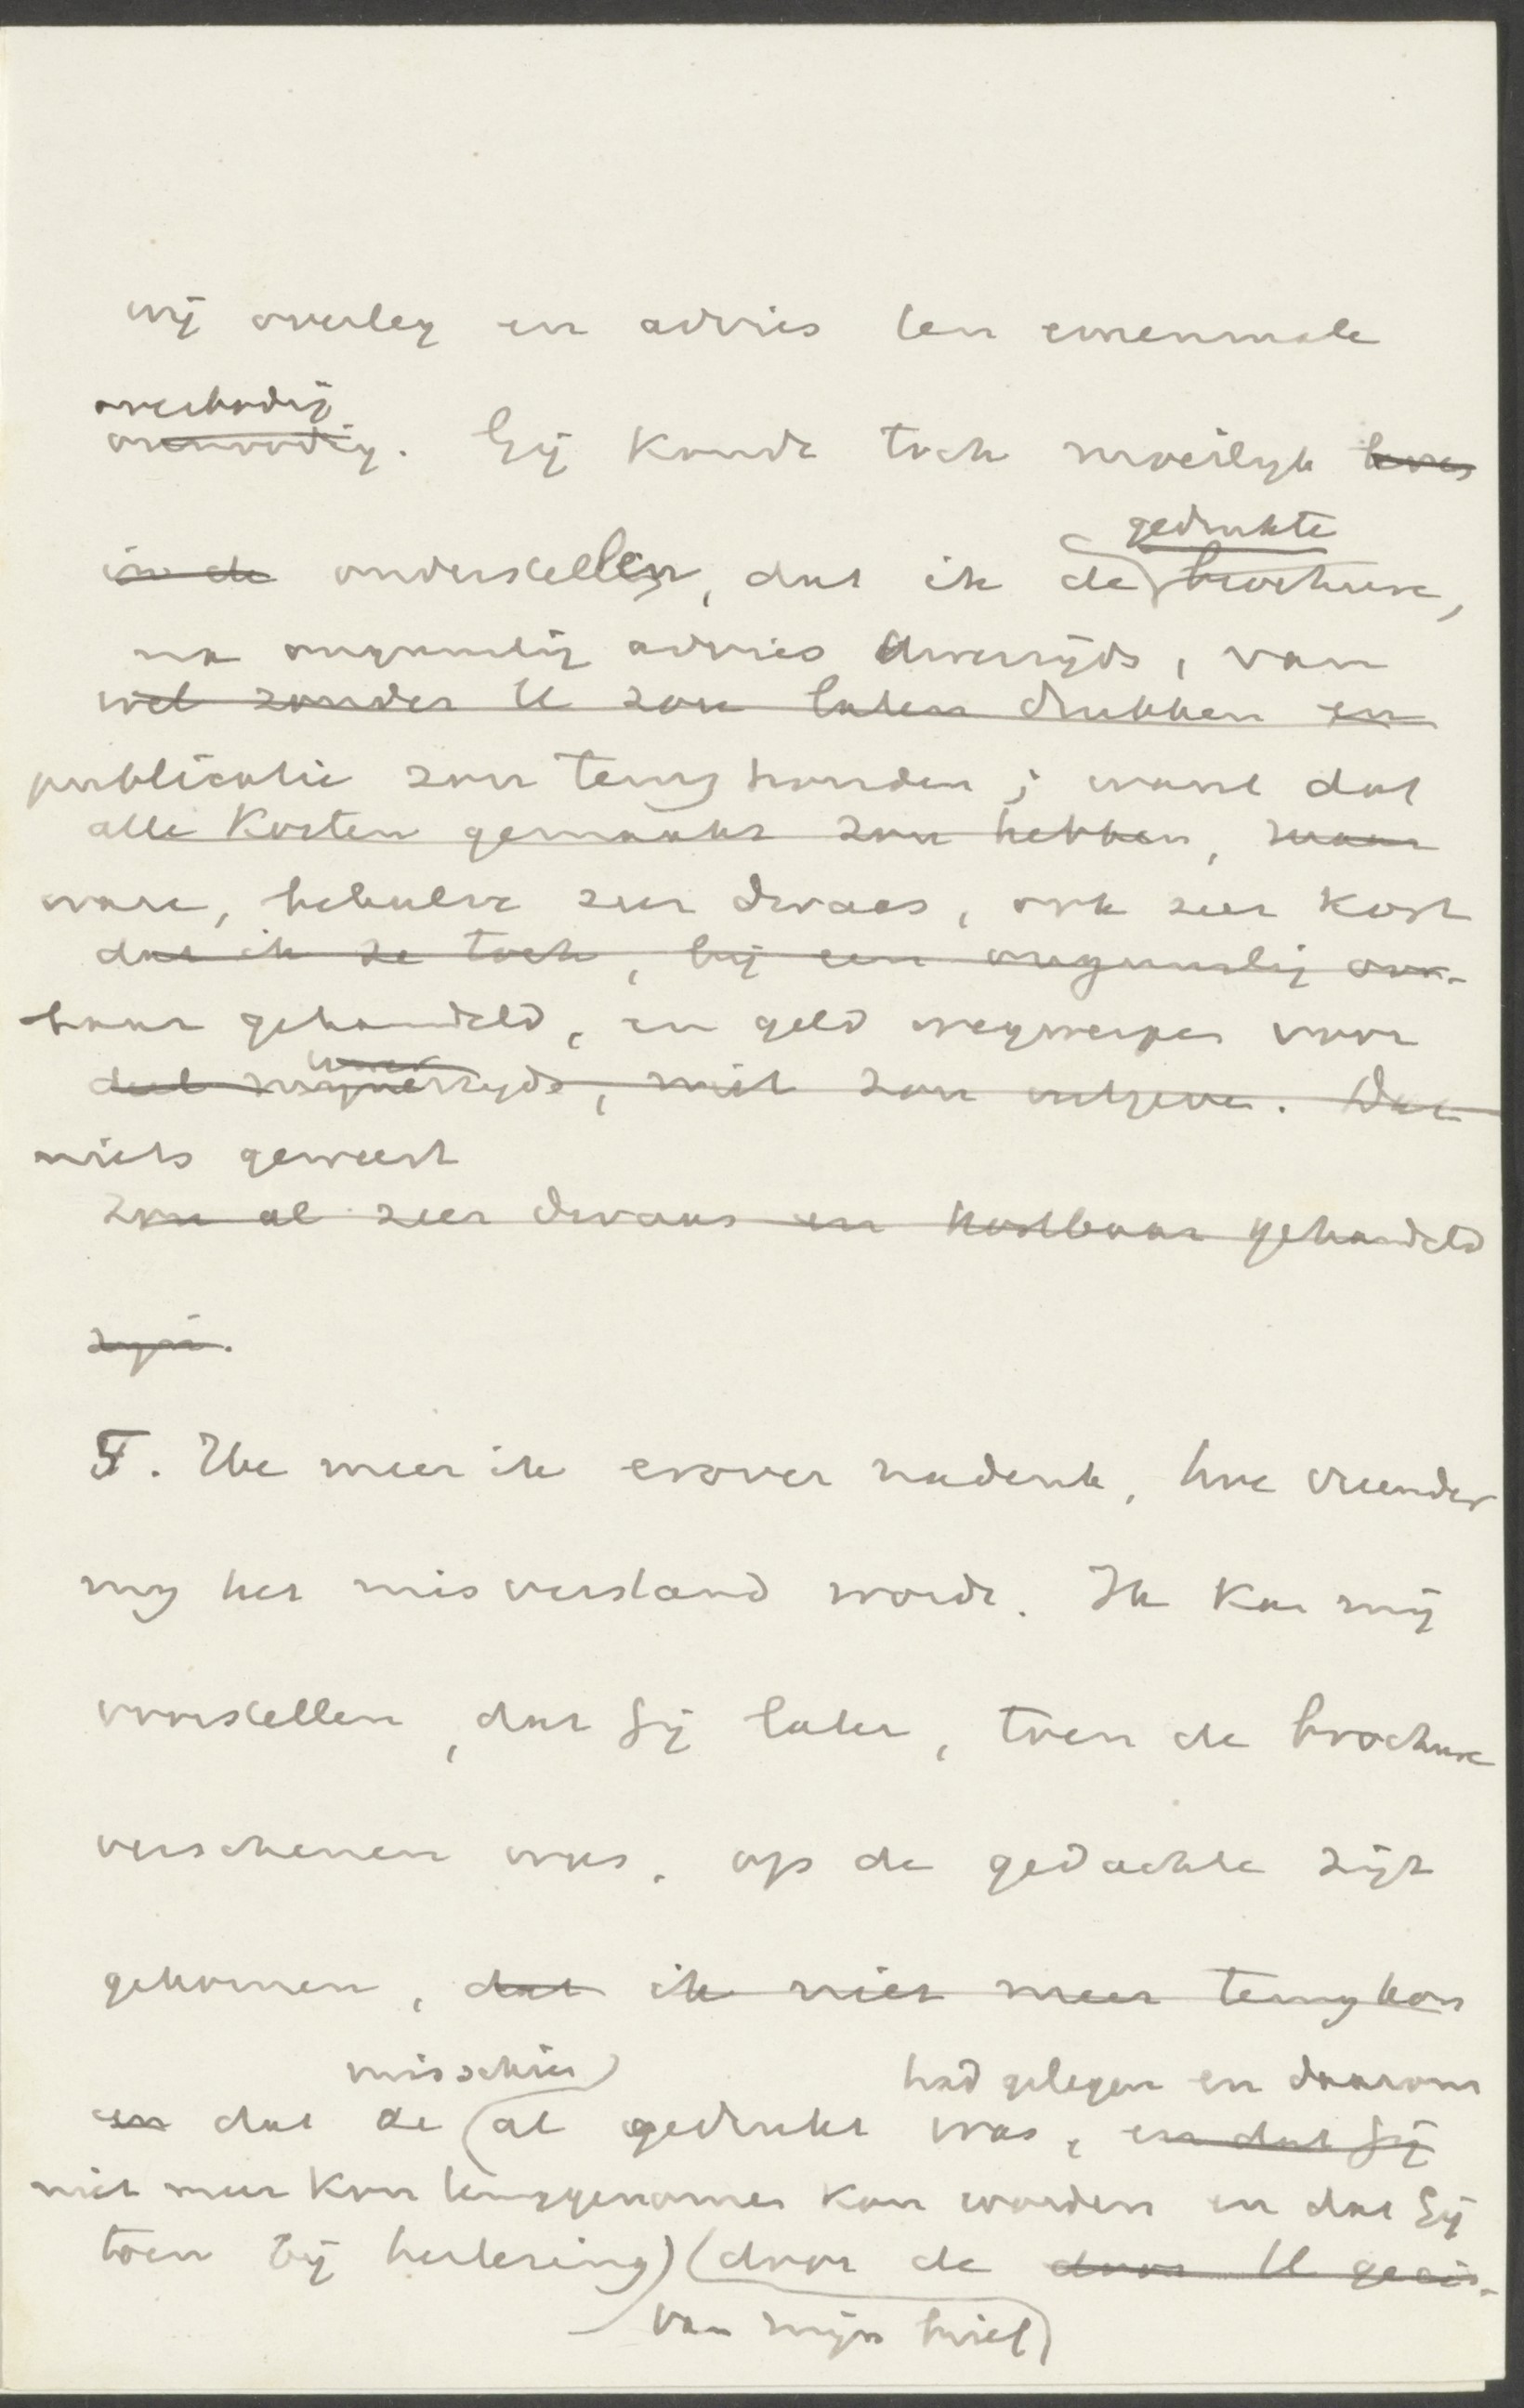 mij overleg en advies ten eenenmale
overbodig
onnoodig. Gij kondt toch moeilyk
in de onderstellen, dat ik de brochure,
gedrukte
na ongunstig advies Uwerzijds, van
wel zonder U zou laten drukken en
publicatie zou terughouden; want dat
alle kosten gemaakt zou hebben, maar
ware, behalve zeer dwaas, ook zeer kost
dat ik ze toch, bij een ongunstig oor-
baar gehandeld, en geld wegwerpen voor
deel mynerzyds, niet zou uitgeven. Dat
niets geweest
zou al zeer dwaas en kostbaar gehandeld
zyn.
5. Hoe meer ik erover nadenk, hoe vreemder
my het misverstand wordt. Ik kan mij
voorstellen, dat Gij later, toen de brochure
verschenen was, op de gedachte zijt
gekomen, dat ik niet meer terug kon
misschien had gelegen en daarom
en dat ze al gedrukt was, en dat Gij
niet meer kon teruggenomen kon worden en dat Gij
toen bij herlezing (door de door U geeis-
van mijn brief)